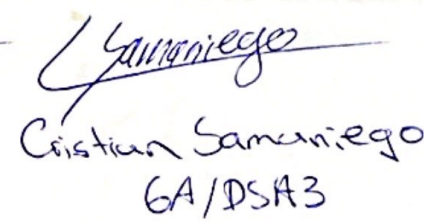 Samaniego
Cristian Samaniego
6A/DSA3